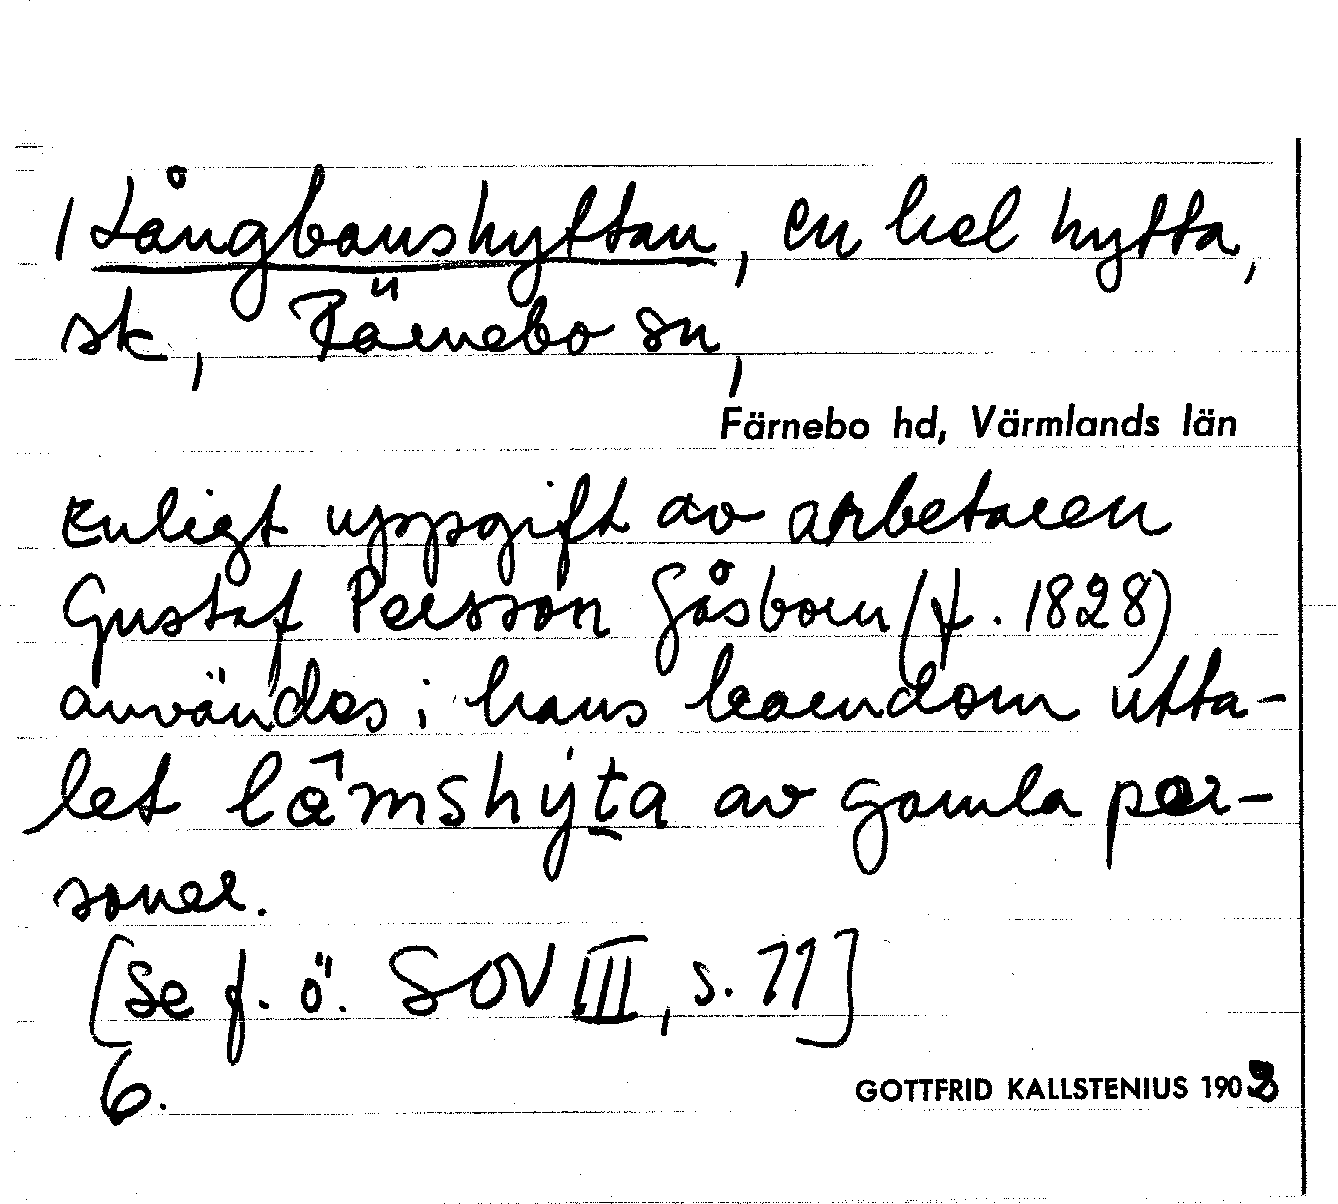 1 Långbanshyttan, en hel hytta,
sk, Färnebo sn,
Färnebo hd, Värmlands län
Enligt uppgift av arbetaren
Gustaf Persson Gåsborn (f. 1828)
användes i hans barndom utta-
let lâ´mshýta av gamla per-
soner.
[Se f. ö. SOV III, s. 77]
6.
GOTTFRID KALLSTENIUS 1903